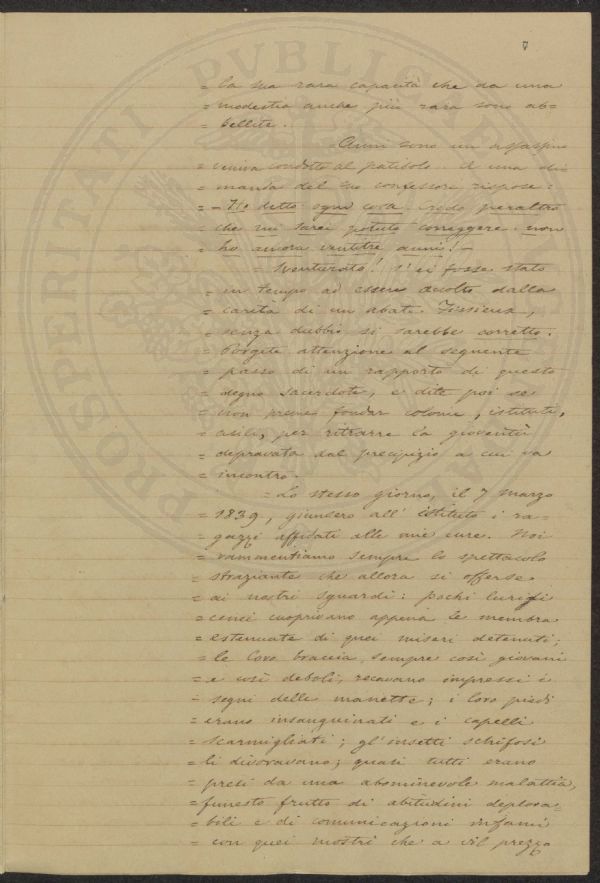 7
= la sua rara capacità che da una
= modestia anche più rara sono ab=
= bellite.
= Anni sono un assassino
= veniva condotto al patibolo. A una di
= manda del suo confessore rispose:
= - Ho detto ogni cosa. Credo peraltro
= che mi sarei potuto correggere: non
= ho ancora ventitre anni! -
= Sventurato! S'ei fosse stato
= in tempo ad essere accolto dalla
= carità di un abate Fissiaux,
= senza dubbio si sarebbe corretto.
= Porgete attenzione al seguente
= passo di un rapporto di questo
= degno sacerdote, e dite poi se
= non preme fondar colonie, istituti,
= asili, per ritrarre la gioventù
= depravata dal precipizio a cui va
= incontro.
= Lo stesso giorno, il 7 marzo
= 1839, giunsero all' istituto i ra-
= gazzi affidati alle mie cure. Noi
= rammentiamo sempre lo spettacolo
= straziante che allora si offerse
= ai nostri sguardi: pochi luridi
= cenci cuoprivano appena le membra
= estenuate di quei miseri detenuti;
= le loro braccia, sempre così giovani
= e così deboli, recavano impressi i
= segni delle manette; i loro piedi
= erano insanguinati e i capelli
= scarmigliati; gl'insetti schifosi
= li divoravano; quasi tutti erano
= presi da una abominevole malattia,
= funesto frutto di abitudini deplora=
= bili e di comunicazioni infami
= con quei mostri che a vil prezzo
PROSPERITATI PVBLICAE